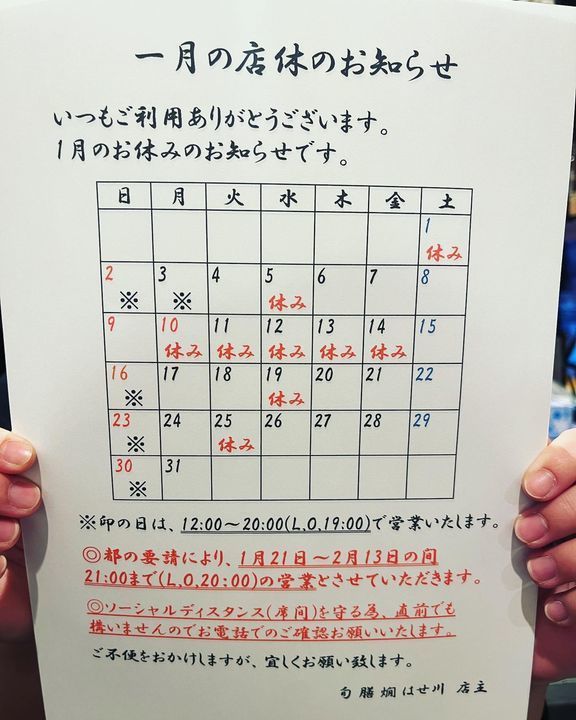 一月の店休のお知らせ
いつもご利用ありがとうございます。
1月のお休みのお知らせです。
日 月 火 水 木 金 土
1
休み
2 3 4 5 6 7 8
※ ※ 休み
9 10 11 12 13 14 15
休み 休み 休み 休み 休み
16 17 18 19 20 21 22
※ 休み
23 24 25 26 27 28 29
※ 休み
30 31
※
※印の日は、12:00～20:00(L,O,19:00)で営業いたします。
◎都の要請により、1月21日～2月13日の間
21:00まで(L,O,20:00)の営業とさせていただきます。
◎ソーシャルディスタンス(席間)を守る為、直前でも
構いませんのでお電話でのご確認お願いいたします。
ご不便をおかけしますが、宜しくお願い致します。
旬膳燗はせ川 店主